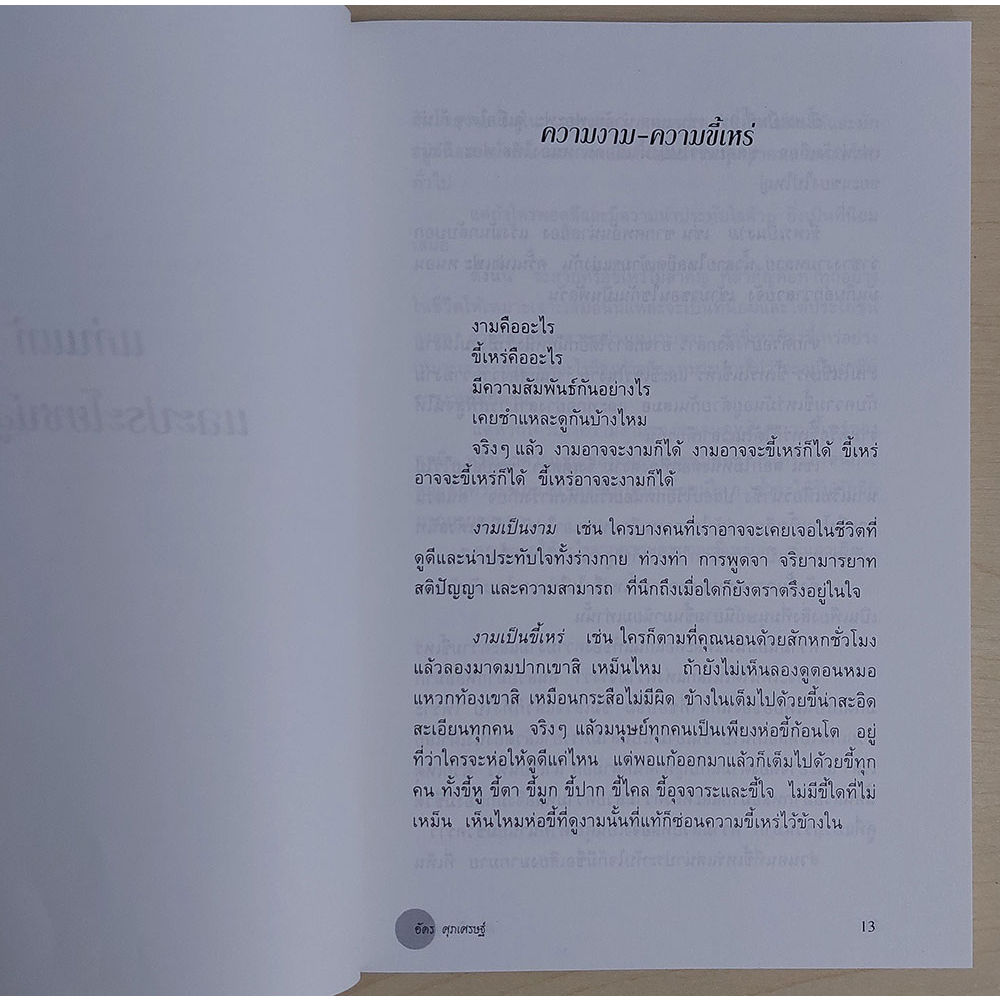 ความงาม-ความขี้เหร่
งามคืออะไร
ขี้เหร่คืออะไร
มีความสัมพันธ์กันอย่างไร
เคยชำแหละดูกันบ้างไหม
จริงๆ แล้ว งามอาจจะงามก็ได้ งามอาจจะขี้เหร่ก็ได้ ขี้เหร่
อาจจะขี้เหร่ก็ได้ ขี้เหร่อาจจะงามก็ได้
งามเป็นงาม เช่น ใครบางคนที่เราอาจจะเคยเจอในชีวิตที่
ดูดีและน่าประทับใจทั้งร่างกาย ท่วงท่า การพูดจา จริยามารยาท
สติปัญญา และความสามารถ ที่นึกถึงเมื่อใดก็ยังตราตรึงอยู่ในใจ
งามเป็นขี้เหร่ เช่น ใครก็ตามที่คุณนอนด้วยสักหกชั่วโมง
แล้วลองมาดมปากเขาสิ เหม็นไหม ถ้ายังไม่เห็นลองดูตอนหมอ
แหวกท้องเขาสิ เหมือนกระสือไม่มีผิด ข้างในเต็มไปด้วยขี้น่าสะอิด
สะเอียนทุกคน จริงๆ แล้วมนุษย์ทุกคนเป็นเพียงห่อขี้ก้อนโต อยู่
ที่ว่าใครจะห่อให้ดูดีแค่ไหน แต่พอแก้ออกมาแล้วก็เต็มไปด้วยขี้ทุก
คน ทั้งขี้หู ขี้ตา ขี้มูก ขี้ปาก ขี้ไคล ขี้อุจจาระและขี้ใจ ไม่มีขี้ใดที่ไม่
เหม็น เห็นไหมห่อขี้ที่ดูงามนั้นที่แท้ก็ซ่อนความขี้เหร่ไว้ข้างใน
อัคร ศุภเศรษฐ์
13